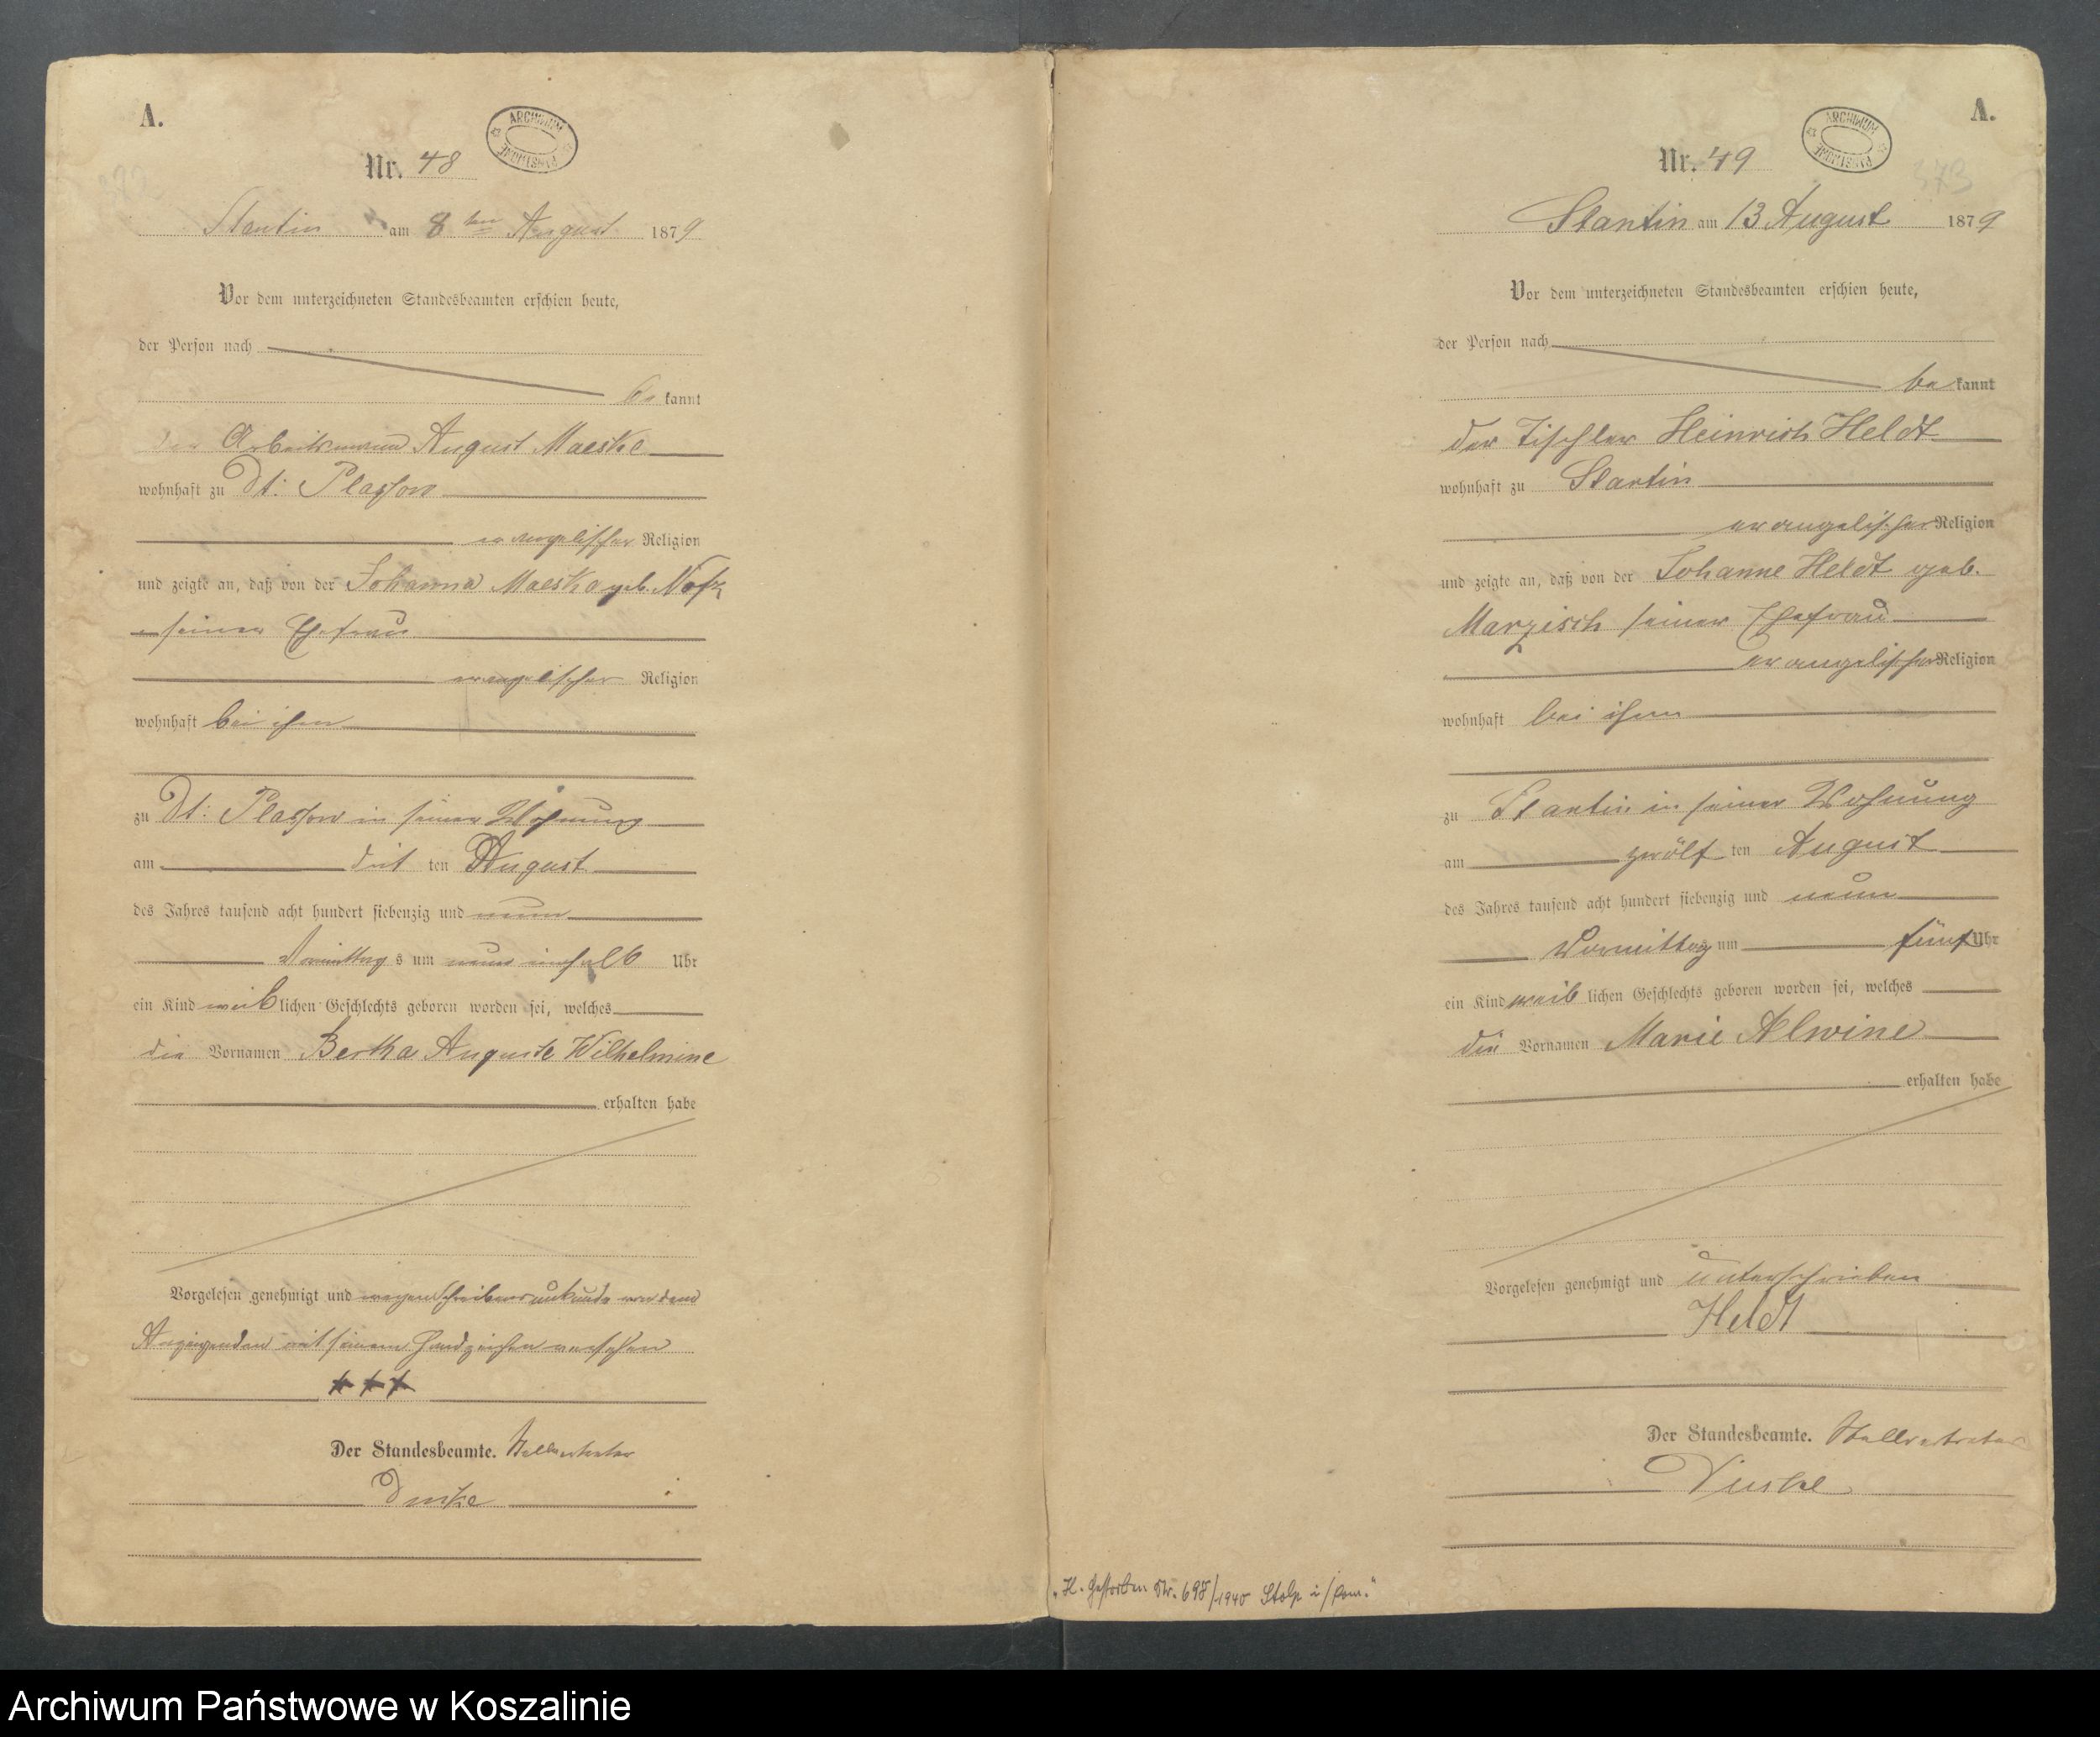 A.
ARCHIWUM PAŃSTWOWE
Nr. 48
Stantin am 8ten August 1879
Vor dem unterzeichneten Standesbeamten erschien heute,
der Person nach
be kannt
der Arbeitsmann August Maeske
wohnhaft zu Dt: Plassow
evangelischer Religion
und zeigte an, daß von der Johanna Maeske geb.
seiner Ehefrau
evangelischer Religion
wohnhaft bei ihm
zu Dt: Plassow in seiner Wohnung
am drit ten August
des Jahres tausend acht hundert siebenzig und neun
Vormittag s um neun einhalb Uhr
ein Kind weiblichen Geschlechts geboren worden sei, welches
die Vornamen Bertha Auguste Wilhelmine
erhalten habe
Vorgelesen genehmigt und wegen Schreibensunkunde von dem
Anzeigenden mit seinem Handzeichen versehen
+++
Der Standesbeamte. Stellvertreter
A.
ARCHIWUM PAŃSTWOWE
Nr. 49
373
Stantin am 13 August 1879
Vor dem unterzeichneten Standesbeamten erschien heute,
der Person nach
be kannt
der Tischler Heinrich Heldt
wohnhaft zu Stantin
evangelischer Religion
und zeigte an, daß von der Johanne Heldt geb.
Marzisch seiner Ehefrau
evangelischer Religion
wohnhaft bei ihm
zu Stantin in seiner Wohnung
am zwölf ten August
des Jahres tausend acht hundert siebenzig und neun
Vormittag um fünf Uhr
ein Kind weib lichen Geschlechts geboren worden sei, welches
die Vornamen Marie Alwine
erhalten habe
Vorgelesen genehmigt und unterschrieben
Heldt
Der Standesbeamte. Stellvertreter
„H. Gestorben Nr. 698/1940 Stolp i/Pom."
Archiwum Państwowe w Koszalinie